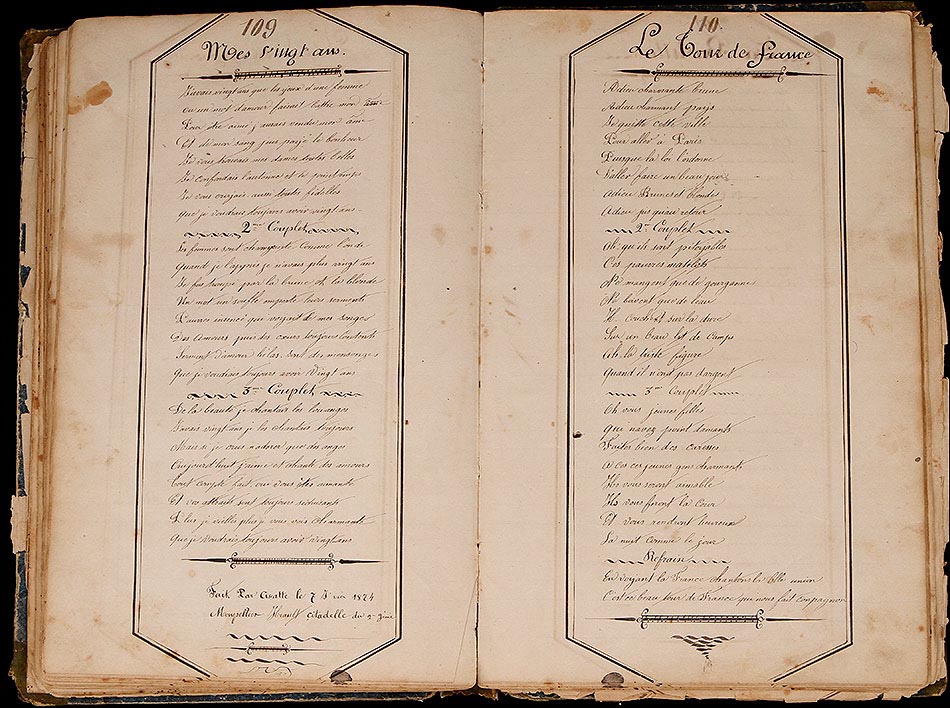 109
Mes Vingt ans.
J'avais vingt ans que les yeux d'une femme
ou un mot d'amour faisait battre mon
Pour être aimé j'aurais vendu mon âme
Et de mon sang jeus payé le bonheur
Je vous trouvais mes dames toutes belles
Je confondais l'automne et le printemps
Je vous croyais aussi toutes fidelles
que je voudrais toujours avoir vingt ans
2me Couplet
Les femmes sont changeante comme l'onde
Quand je l'appris je n'avais plus vingt ans
Je fus trompé par la brune et la blonde
Un mot un souffle emporte leurs serments
Pauvre insensé que voyait de mes songes
Des amours purs des cœurs toujours
Serment d'amour hélas sont des mensonges
Que je voudrais toujours avoir Vingt ans
3me Couplet
De la beauté je chantais les louanges
J'avais vingt ans je les chantais toujours
Mais si je crus n'adorer que des anges
Aujourd'huit j'aime et chante des amours
Tout compte fait oui vous êtes aimante
Et vos attraits sont toujours séduisants
Plus je vielles plus je vous vois charmante
Que je voudrais toujours avoir vingt ans
Fait Par le 7 Juin 1874
Montpellier Hérault Citadelle du 2e Génie
110.
Le Tour de france
Adieu charmante brune
Adieu charmant pays
Je quitte cette ville
Pour aller à Paris
Puisque la loi l'ordonne
D'aller faire un beau jour
Adieu Brunes et blondes
Adieu jus quau retour
2me Couplet
Oh qu'ils sont pitoyables
Ces pauvres matelots
Ne mangent que de gourganne
Ne boivent que de l'eau
Ils couchent sur la dure
Sur un beau lit de camps
Oh la triste figure
Quand il n'ont pas d'argent
3me Couplet
Oh vous jeunes filles
Que navez point damants
Faites bien des caresses
a ces ces jeunes gens charmants
Ils vous seront aimable
Ils vous feront la Cour
Et vous rendront heureux
La nuit comme le jour
Refrain
En voyant la France chantons la belle union
C'est ce beau tour de France qui nous fait compagnon